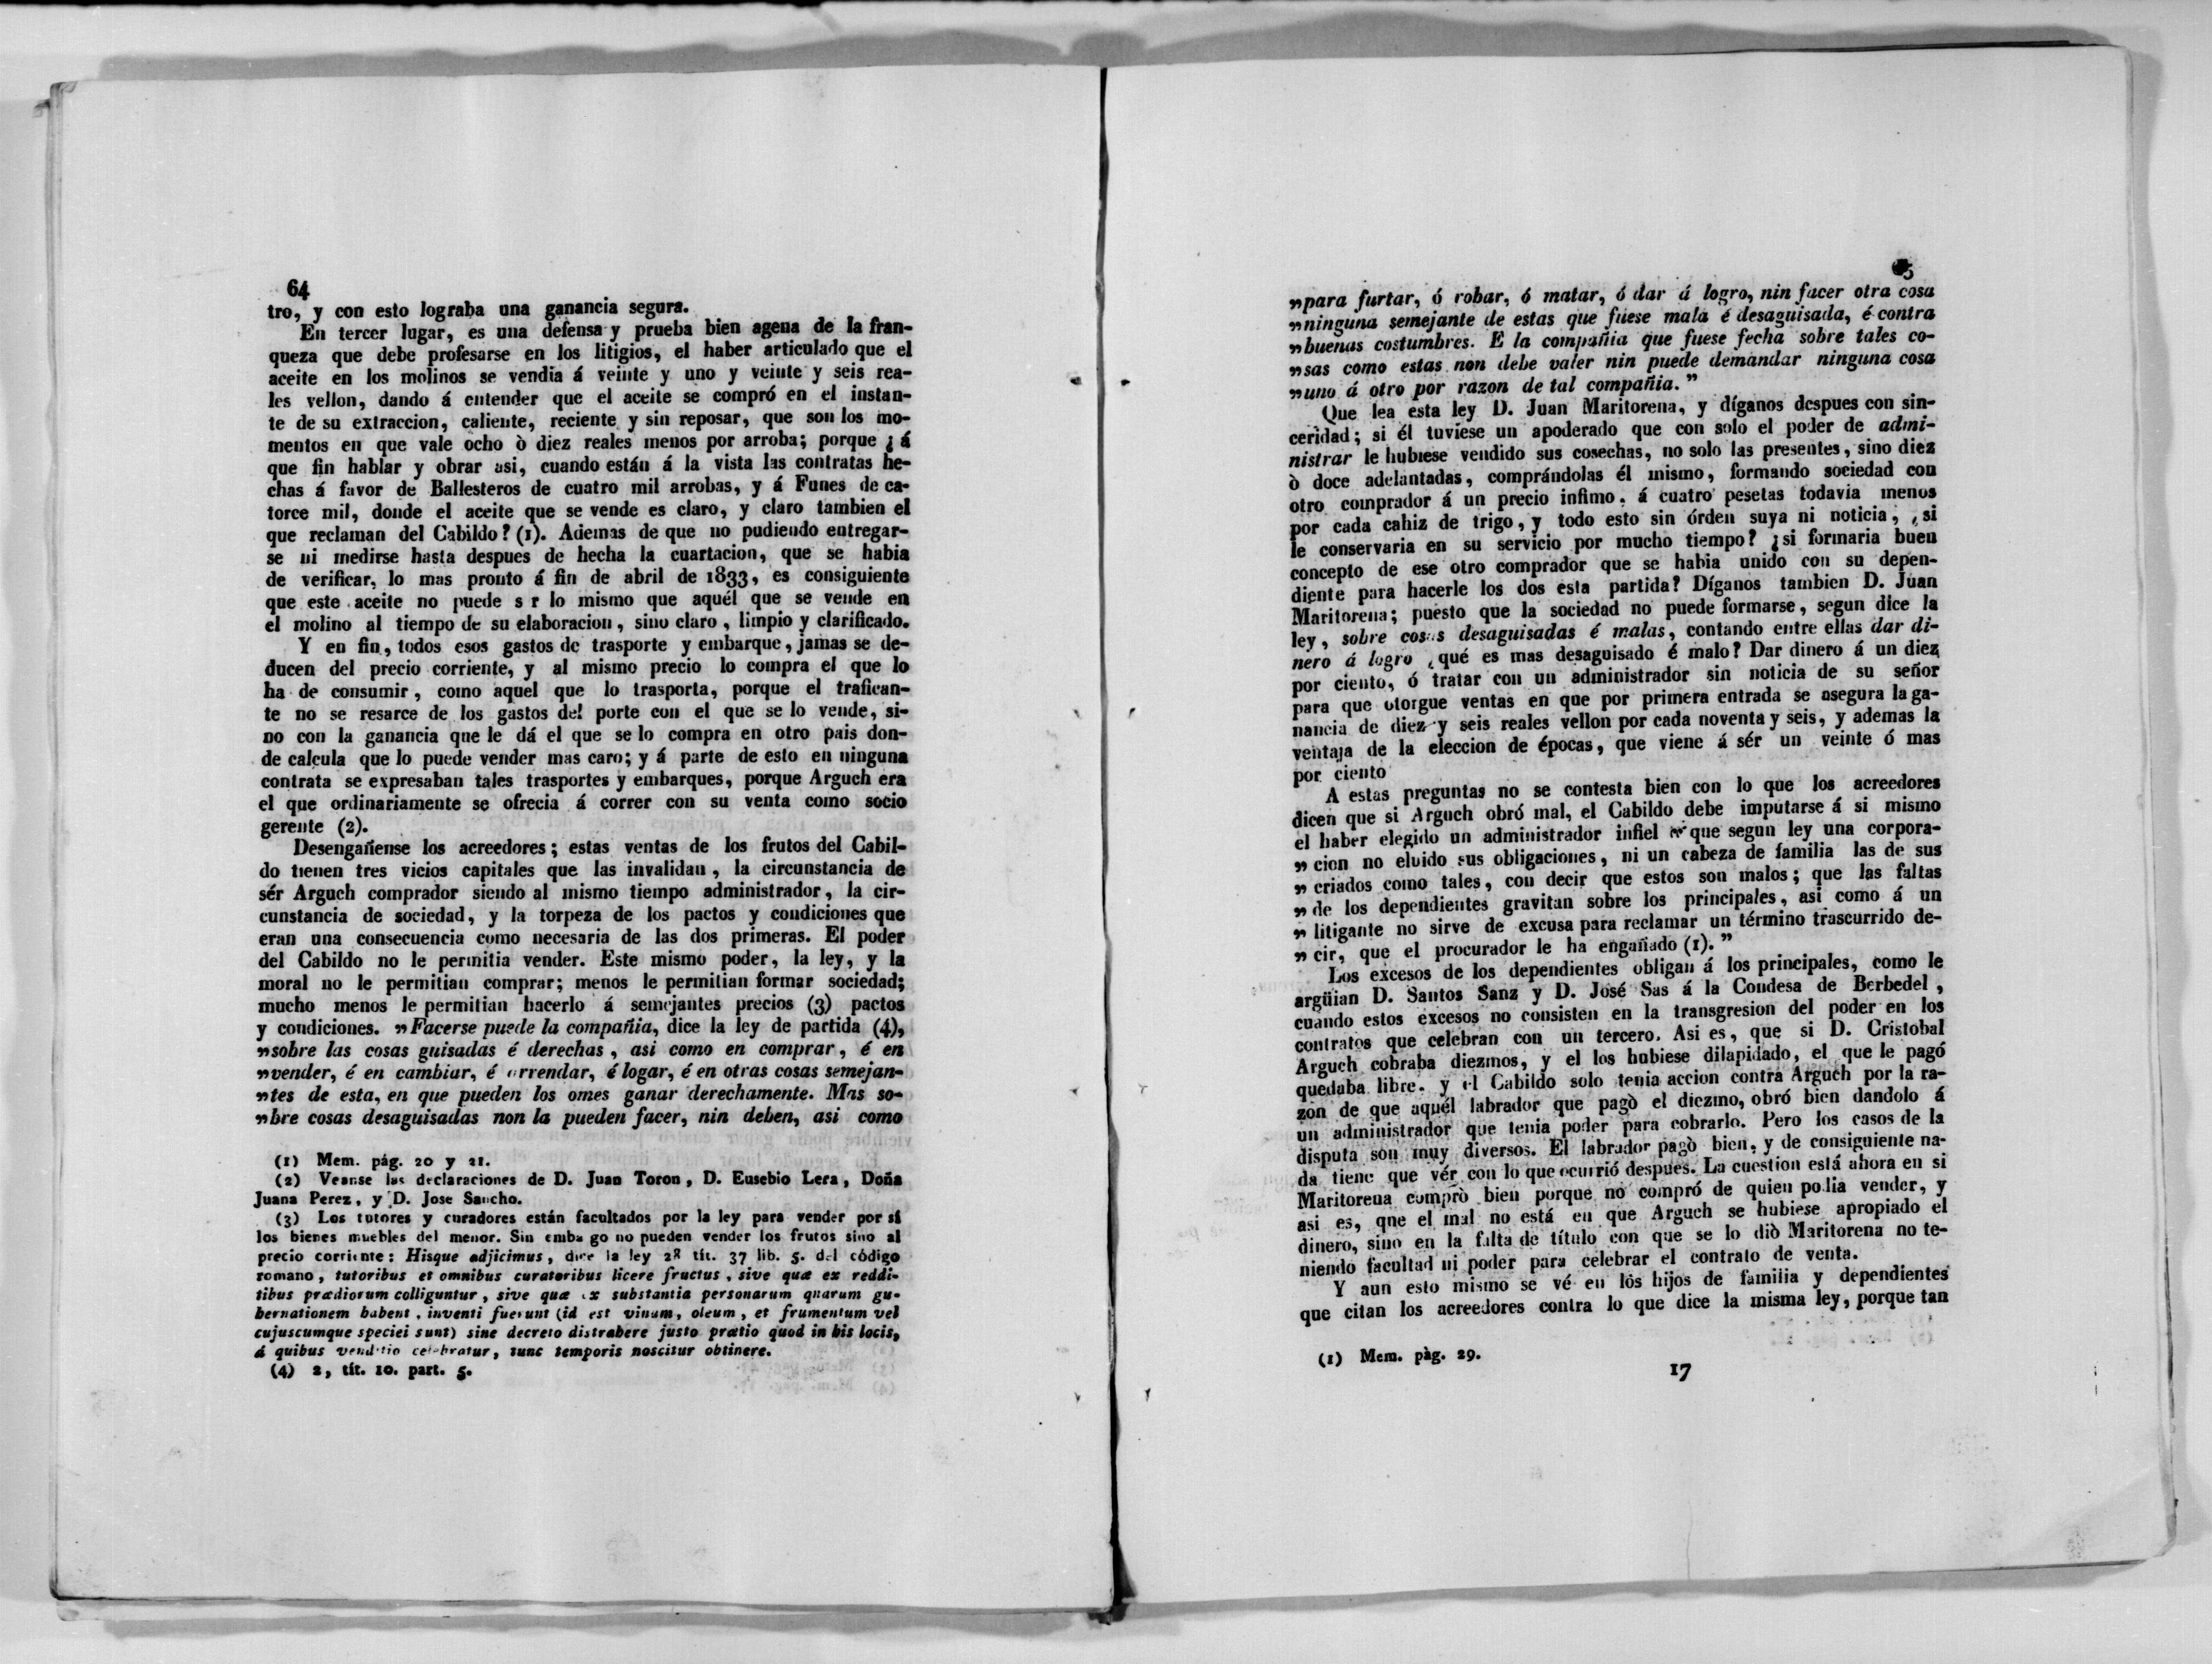 64
tro, y con esto lograba una ganancia segura.
En tercer lugar, es una defensa y prueba bien agena de la fran-
queza que debe profesarse en los litigios, el haber articulado que el
aceite en los molinos se vendia á veinte y uno y veinte y seis rea-
les vellon, dando á entender que el aceite se compró en el instan-
te de su extraccion, caliente, reciente y sin reposar, que son los mo-
mentos en que vale ocho ò diez reales menos por arroba; porque ¿ á
que fin hablar y obrar asi, cuando están á la vista las contratas he-
chas á favor de Ballesteros de cuatro mil arrobas, y á Funes de ca-
torce mil, donde el aceite que se vende es claro, y claro tambien el
que reclaman del Cabildo? (1). Ademas de que no pudiendo entregar-
se ni medirse hasta despues de hecha la cuartacion, que se habia
de verificar, lo mas pronto á fin de abril de 1833, es consiguiente
que este aceite no puede s r lo mismo que aquél que se vende en
el molino al tiempo de su elaboracion, sino claro, limpio y clarificado.
Y en fin, todos esos gastos de trasporte y embarque, jamas se de-
ducen del precio corriente, y al mismo precio lo compra el que lo
ha de consumir, como aquel que lo trasporta, porque el trafican-
te no se resarce de los gastos del porte con el que se lo vende, si-
no con la ganancia que le dá el que se lo compra en otro pais don-
de calcula que lo puede vender mas caro; y á parte de esto en ninguna
contrata se expresaban tales trasportes y embarques, porque Arguch era
el que ordinariamente se ofrecia á correr con su venta como socio
gerente (2).
Desengañense los acreedores; estas ventas de los frutos del Cabil-
do tienen tres vicios capitales que las invalidan, la circunstancia de
sér Arguch comprador siendo al mismo tiempo administrador, la cir-
cunstancia de sociedad, y la torpeza de los pactos y condiciones que
eran una consecuencia como necesaria de las dos primeras. El poder
del Cabildo no le permitia vender. Este mismo poder, la ley, y la
moral no le permitian comprar; menos le permitian formar sociedad;
mucho menos le permitian hacerlo á semejantes precios (3) pactos
y condiciones. „Facerse puede la compañia, dice la ley de partida (4),
„sobre las cosas guisadas é derechas, asi como en comprar, é en
„vender, é en cambiar, é arrendar, é logar, é en otras cosas semejan-
„tes de esta, en que pueden los omes ganar derechamente. Mas so-
„bre cosas desaguisadas non la pueden facer, nin deben, asi como
(1) Mem. pág. 20 y 21.
(2) Veanse las declaraciones de D. Juan Toron, D. Eusebio Lera, Doña
Juana Perez, y D. Jose Sancho.
(3) Los tutores y curadores están facultados por la ley para vender por sí
los bienes muebles del menor. Sin emba go no pueden vender los frutos sino al
precio corriente: Hisque adjicimus, dice la ley 28 tít. 37 lib. 5. del código
romano, tutoribus et omnibus curatoribus licere fructus, sive quæ ex reddi-
tibus prædiorum colliguntur, sive quæ ex substantia personarum quarum gu-
bernationem habent, inventi fuerunt (id est vinum, oleum, et frumentum vel
cujuscumque speciei sunt) sine decreto distrahere justo prætio quod in his locis,
á quibus venditio celebratur, tunc temporis noscitur obtinere.
(4) 2, tít. 10. part. 5.
5
„para furtar, ó robar, ó matar, ó dar á logro, nin facer otra cosa
„ninguna semejante de estas que fuese mala é desaguisada, é contra
„buenas costumbres. E la compañia que fuese fecha sobre tales co-
„sas como estas non debe valer nin puede demandar ninguna cosa
„uno á otro por razon de tal compañia.”
Que lea esta ley D. Juan Maritorena, y díganos despues con sin-
ceridad; si él tuviese un apoderado que con solo el poder de admi-
nistrar le hubiese vendido sus cosechas, no solo las presentes, sino diez
ò doce adelantadas, comprándolas él mismo, formando sociedad con
otro comprador á un precio infimo. á cuatro pesetas todavia menos
por cada cahiz de trigo, y todo esto sin órden suya ni noticia, ¿si
le conservaria en su servicio por mucho tiempo? ¿si formaria buen
concepto de ese otro comprador que se habia unido con su depen-
diente para hacerle los dos esta partida? Díganos tambien D. Juan
Maritorena; puesto que la sociedad no puede formarse, segun dice la
ley, sobre cosas desaguisadas é malas, contando entre ellas dar di-
nero á logro ¿qué es mas desaguisado é malo? Dar dinero á un diez
por ciento, ó tratar con un administrador sin noticia de su señor
para que otorgue ventas en que por primera entrada se asegura la ga-
nancia de diez y seis reales vellon por cada noventa y seis, y ademas la
ventaja de la eleccion de épocas, que viene á sér un veinte ó mas
por ciento
A estas preguntas no se contesta bien con lo que los acreedores
dicen que si Arguch obró mal, el Cabildo debe imputarse á si mismo
el haber elegido un administrador infiel „que segun ley una corpora-
„ cion no eluido sus obligaciones, ni un cabeza de familia las de sus
„ criados como tales, con decir que estos son malos; que las faltas
„ de los dependientes gravitan sobre los principales, asi como á un
„ litigante no sirve de excusa para reclamar un término trascurrido de-
„ cir, que el procurador le ha engañado (1).”
Los excesos de los dependientes obligan á los principales, como le
argüian D. Santos Sanz y D. José Sas á la Condesa de Berbedel,
cuando estos excesos no consisten en la transgresion del poder en los
contratos que celebran con un tercero. Asi es, que si D. Cristobal
Arguch cobraba diezmos, y el los hubiese dilapidado, el que le pagó
quedaba libre. y el Cabildo solo tenia accion contra Arguch por la ra-
zon de que aquél labrador que pagò el diezmo, obró bien dandolo á
un administrador que tenia poder para cobrarlo. Pero los casos de la
disputa son muy diversos. El labrador pagò bien, y de consiguiente na-
da tiene que vér con lo que ocurrió despues. La cuestion está ahora en si
Maritorena comprò bien porque no compró de quien podia vender, y
asi es, que el mal no está en que Arguch se hubiese apropiado el
dinero, sino en la falta de título con que se lo diò Maritorena no te-
niendo facultad ni poder para celebrar el contrato de venta.
Y aun esto mismo se vé en los hijos de familia y dependientes
que citan los acreedores contra lo que dice la misma ley, porque tan
(1) Mem. pàg. 29.
17